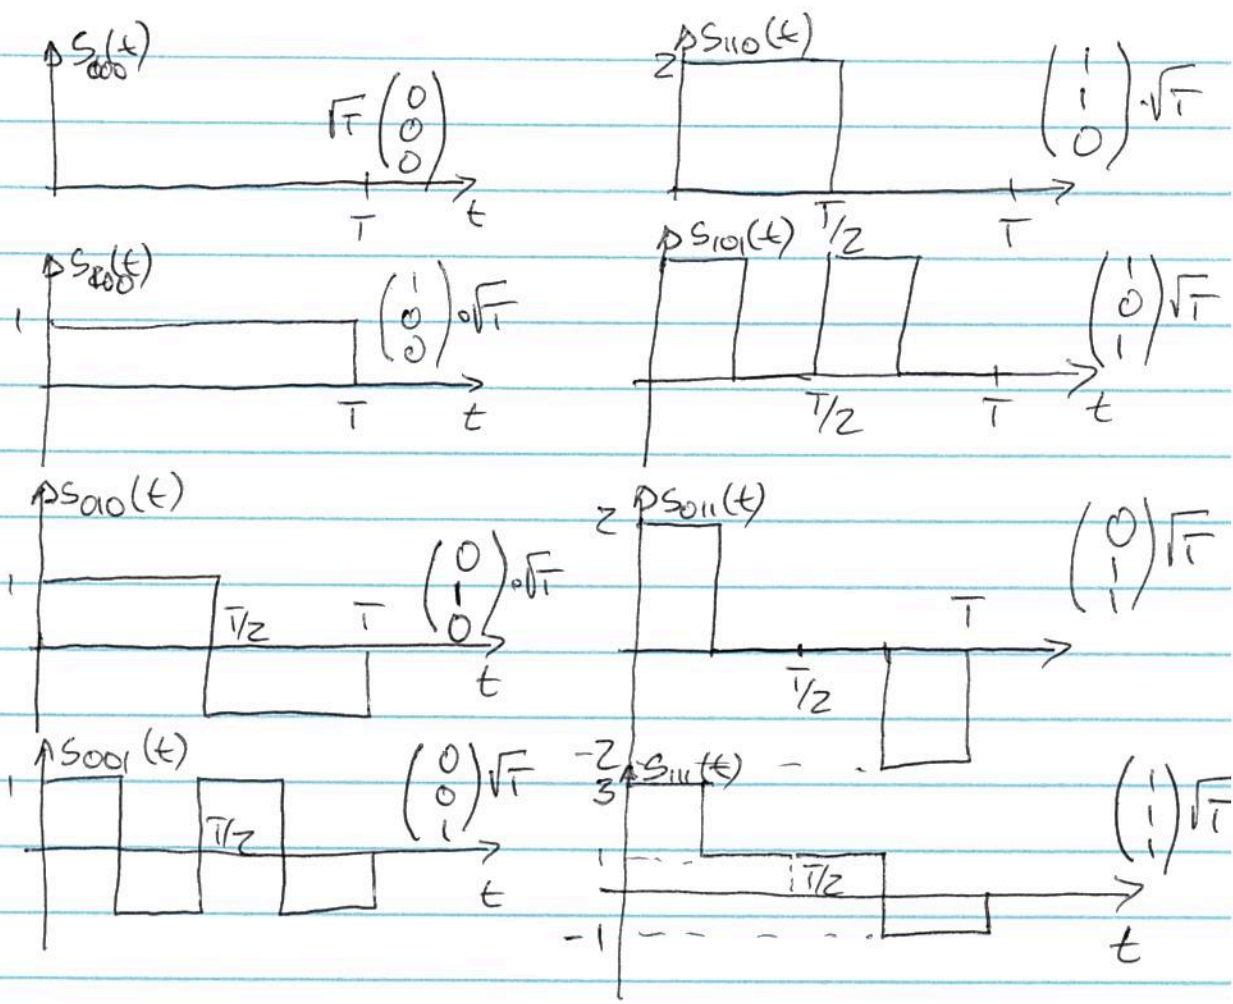 S₀₀₀(t)
√T (0 0 0)
T t
S₁₀₀(t)
1 (1 0 0)·√T
T t
S₀₁₀(t)
1 T/2 T (0 1 0)·√T
t
S₀₀₁(t)
1 T/2 (0 0 1)√T
t
S₁₁₀(t)
2 (1 1 0)·√T
T/2 T
S₁₀₁(t)
(1 0 1)√T
T/2 T t
S₀₁₁(t)
2 (0 1 1)√T
T
T/2
-2
S₁₁₁(t)
3 (1 1 1)√T
1 T/2
-1 t